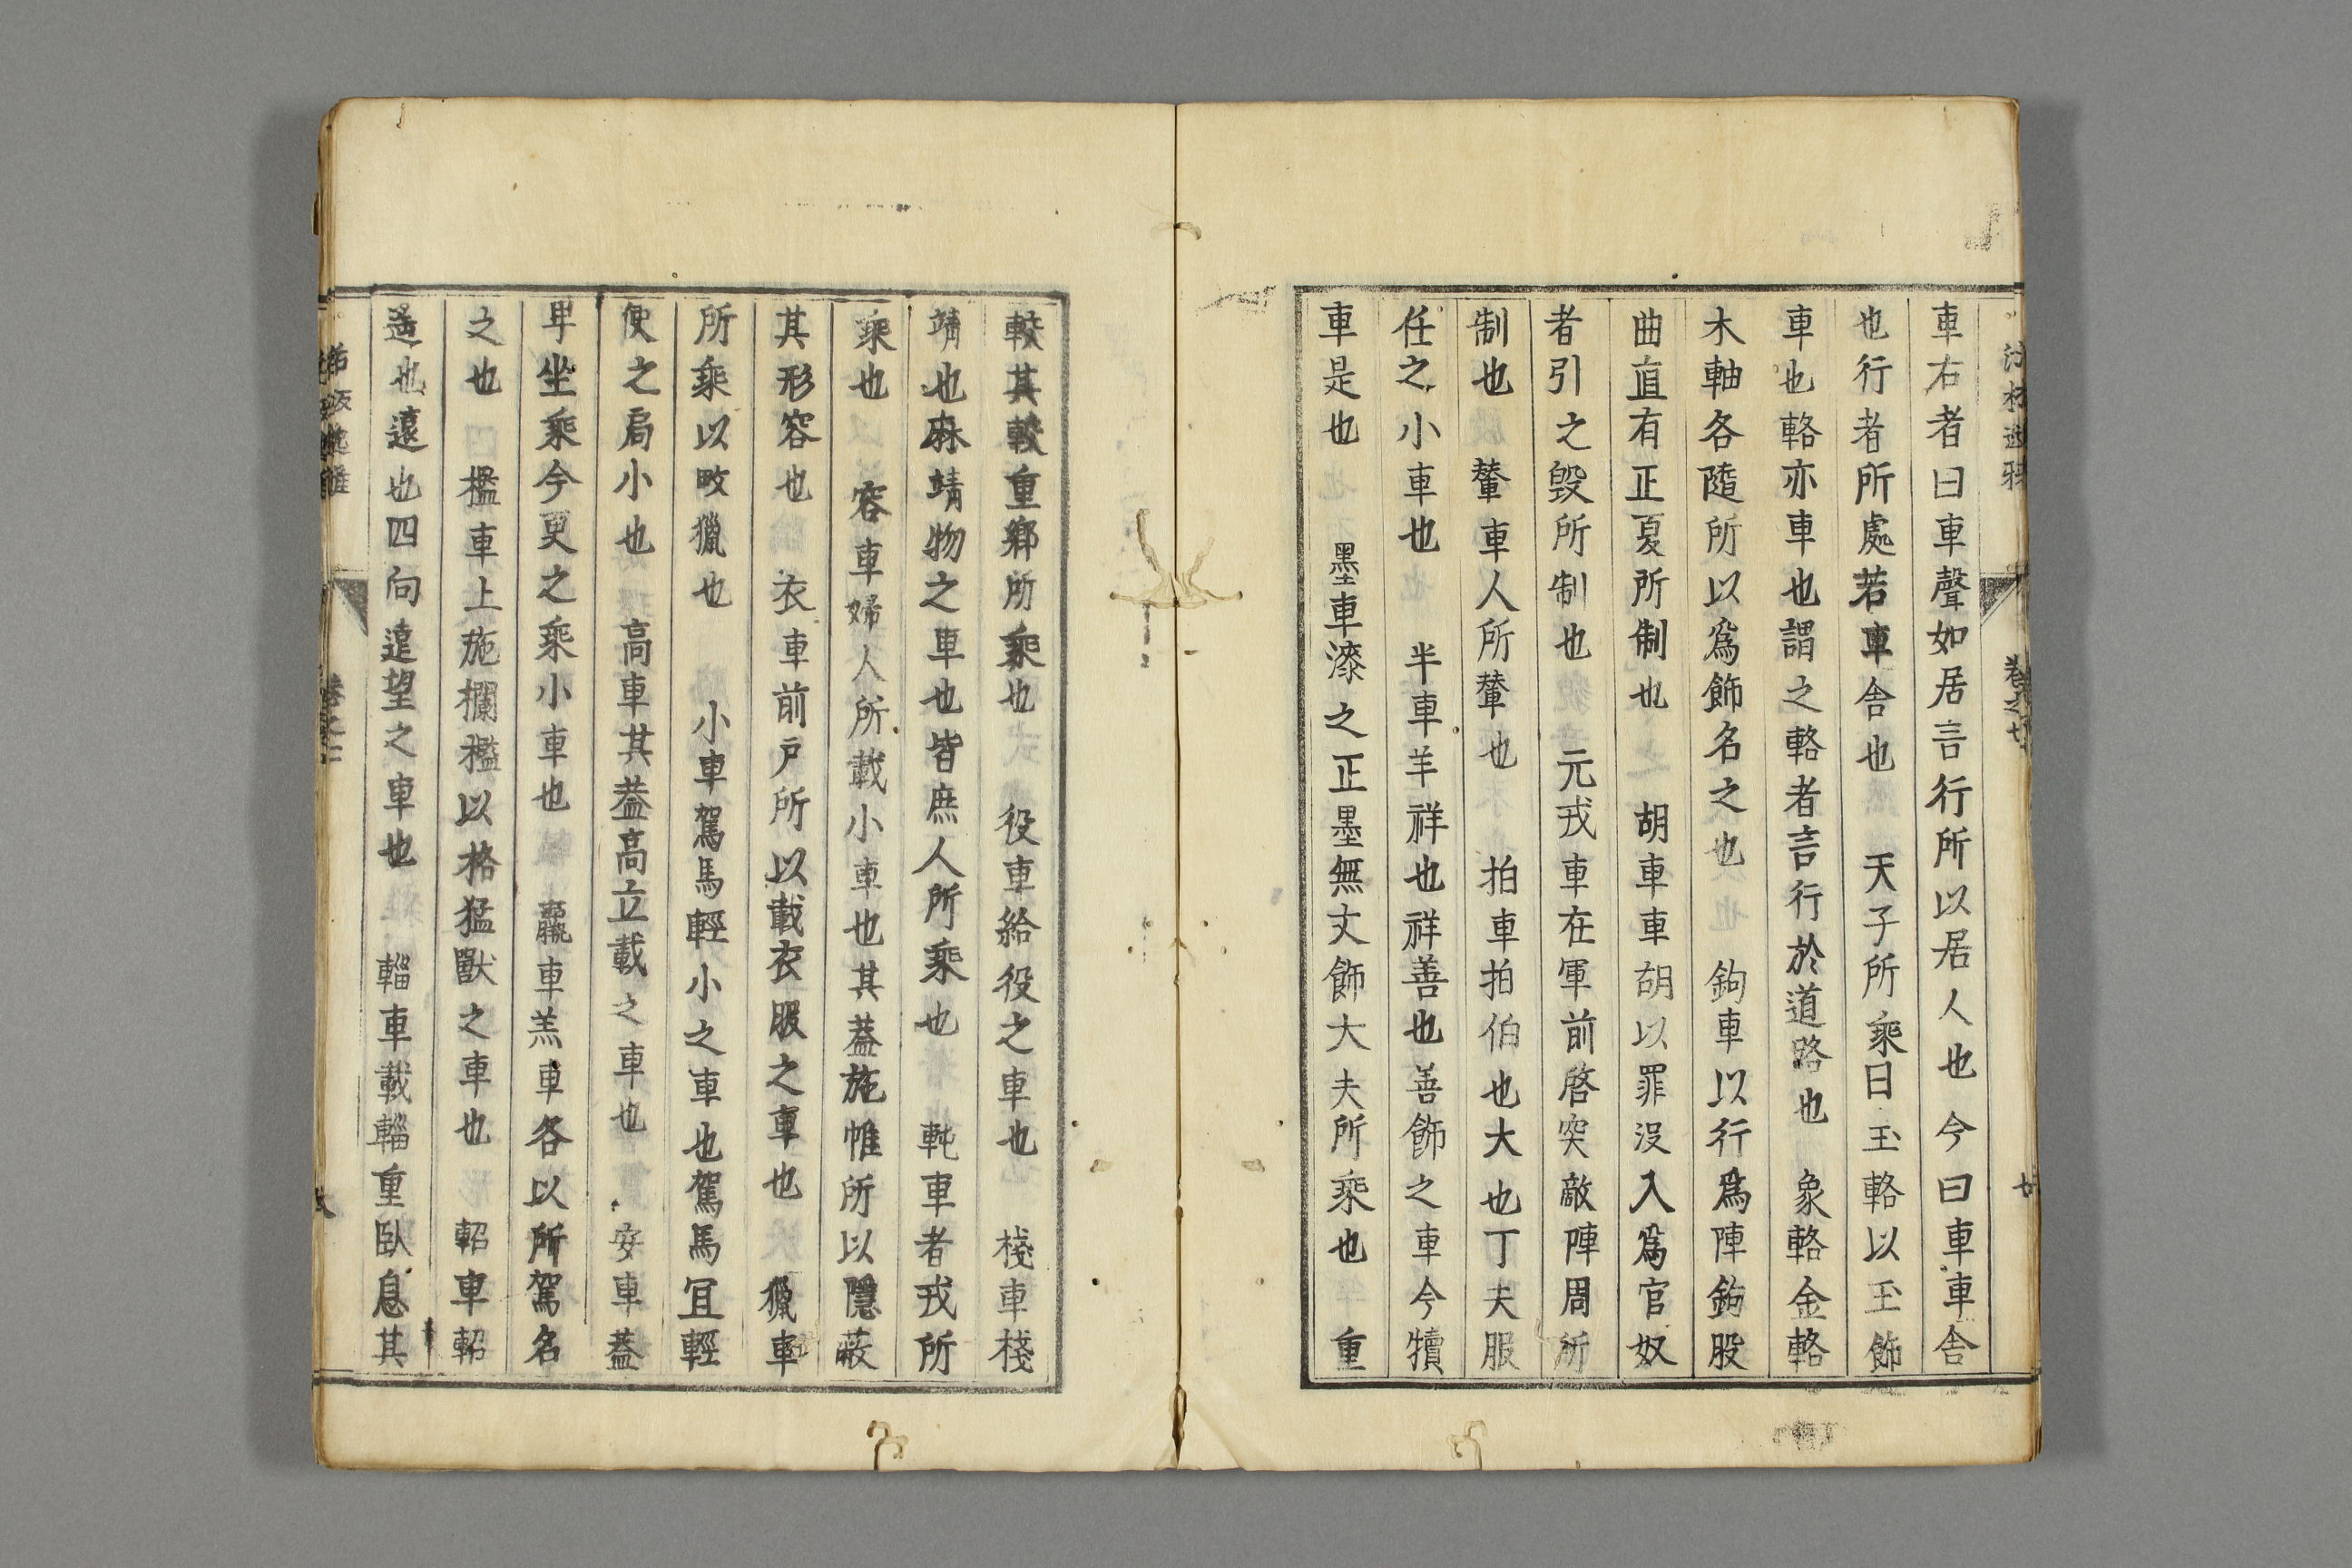 車右者曰車聲如居言行所以居人也今曰車車舍
也行者所處若車舍也　天子所乘曰玉輅以玉飾
車也輅亦車也謂之輅者言行於道路也　象輅金輅
木輅各隨所以爲飾名之也　鉤車以行爲陣鉤股
曲直有正夏所制也　胡車車胡以罪沒入爲官奴
者引之毀所制也　元戎車在軍前啓突敵陣周所
制也　輦車人所輦也　拍車拍伯也大也丁夫服
任之小車也　半車羊祥也祥善也善飾之車今犢
車是也　墨車漆之正墨無文飾大夫所乘也　重
較其較重鄉所乘也　役車給役之車也　棧車棧
靖也麻靖物之車也皆庶人所乘也　軘車者戎所
乘也　容車婦人所載小車也其蓋施帷所以隱蔽
其形容也　衣車前戶所以載衣服之車也　獵車
所乘以畋獵也　小車駕馬輕小之車也駕馬宜輕
使之局小也　高車其蓋高立載之車也　安車蓋
卑坐乘今更之乘小車也　羸車羔車各以所駕名
之也　檻車上施欄檻以格猛獸之車也　軺車軺
遙也遠也四向遠望之車也　輜車載輜重臥息其